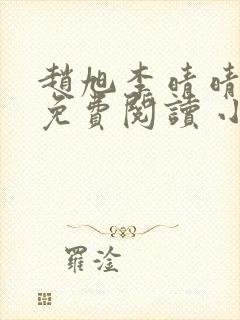 趙旭李晴晴
免費閱讀小
羅淦